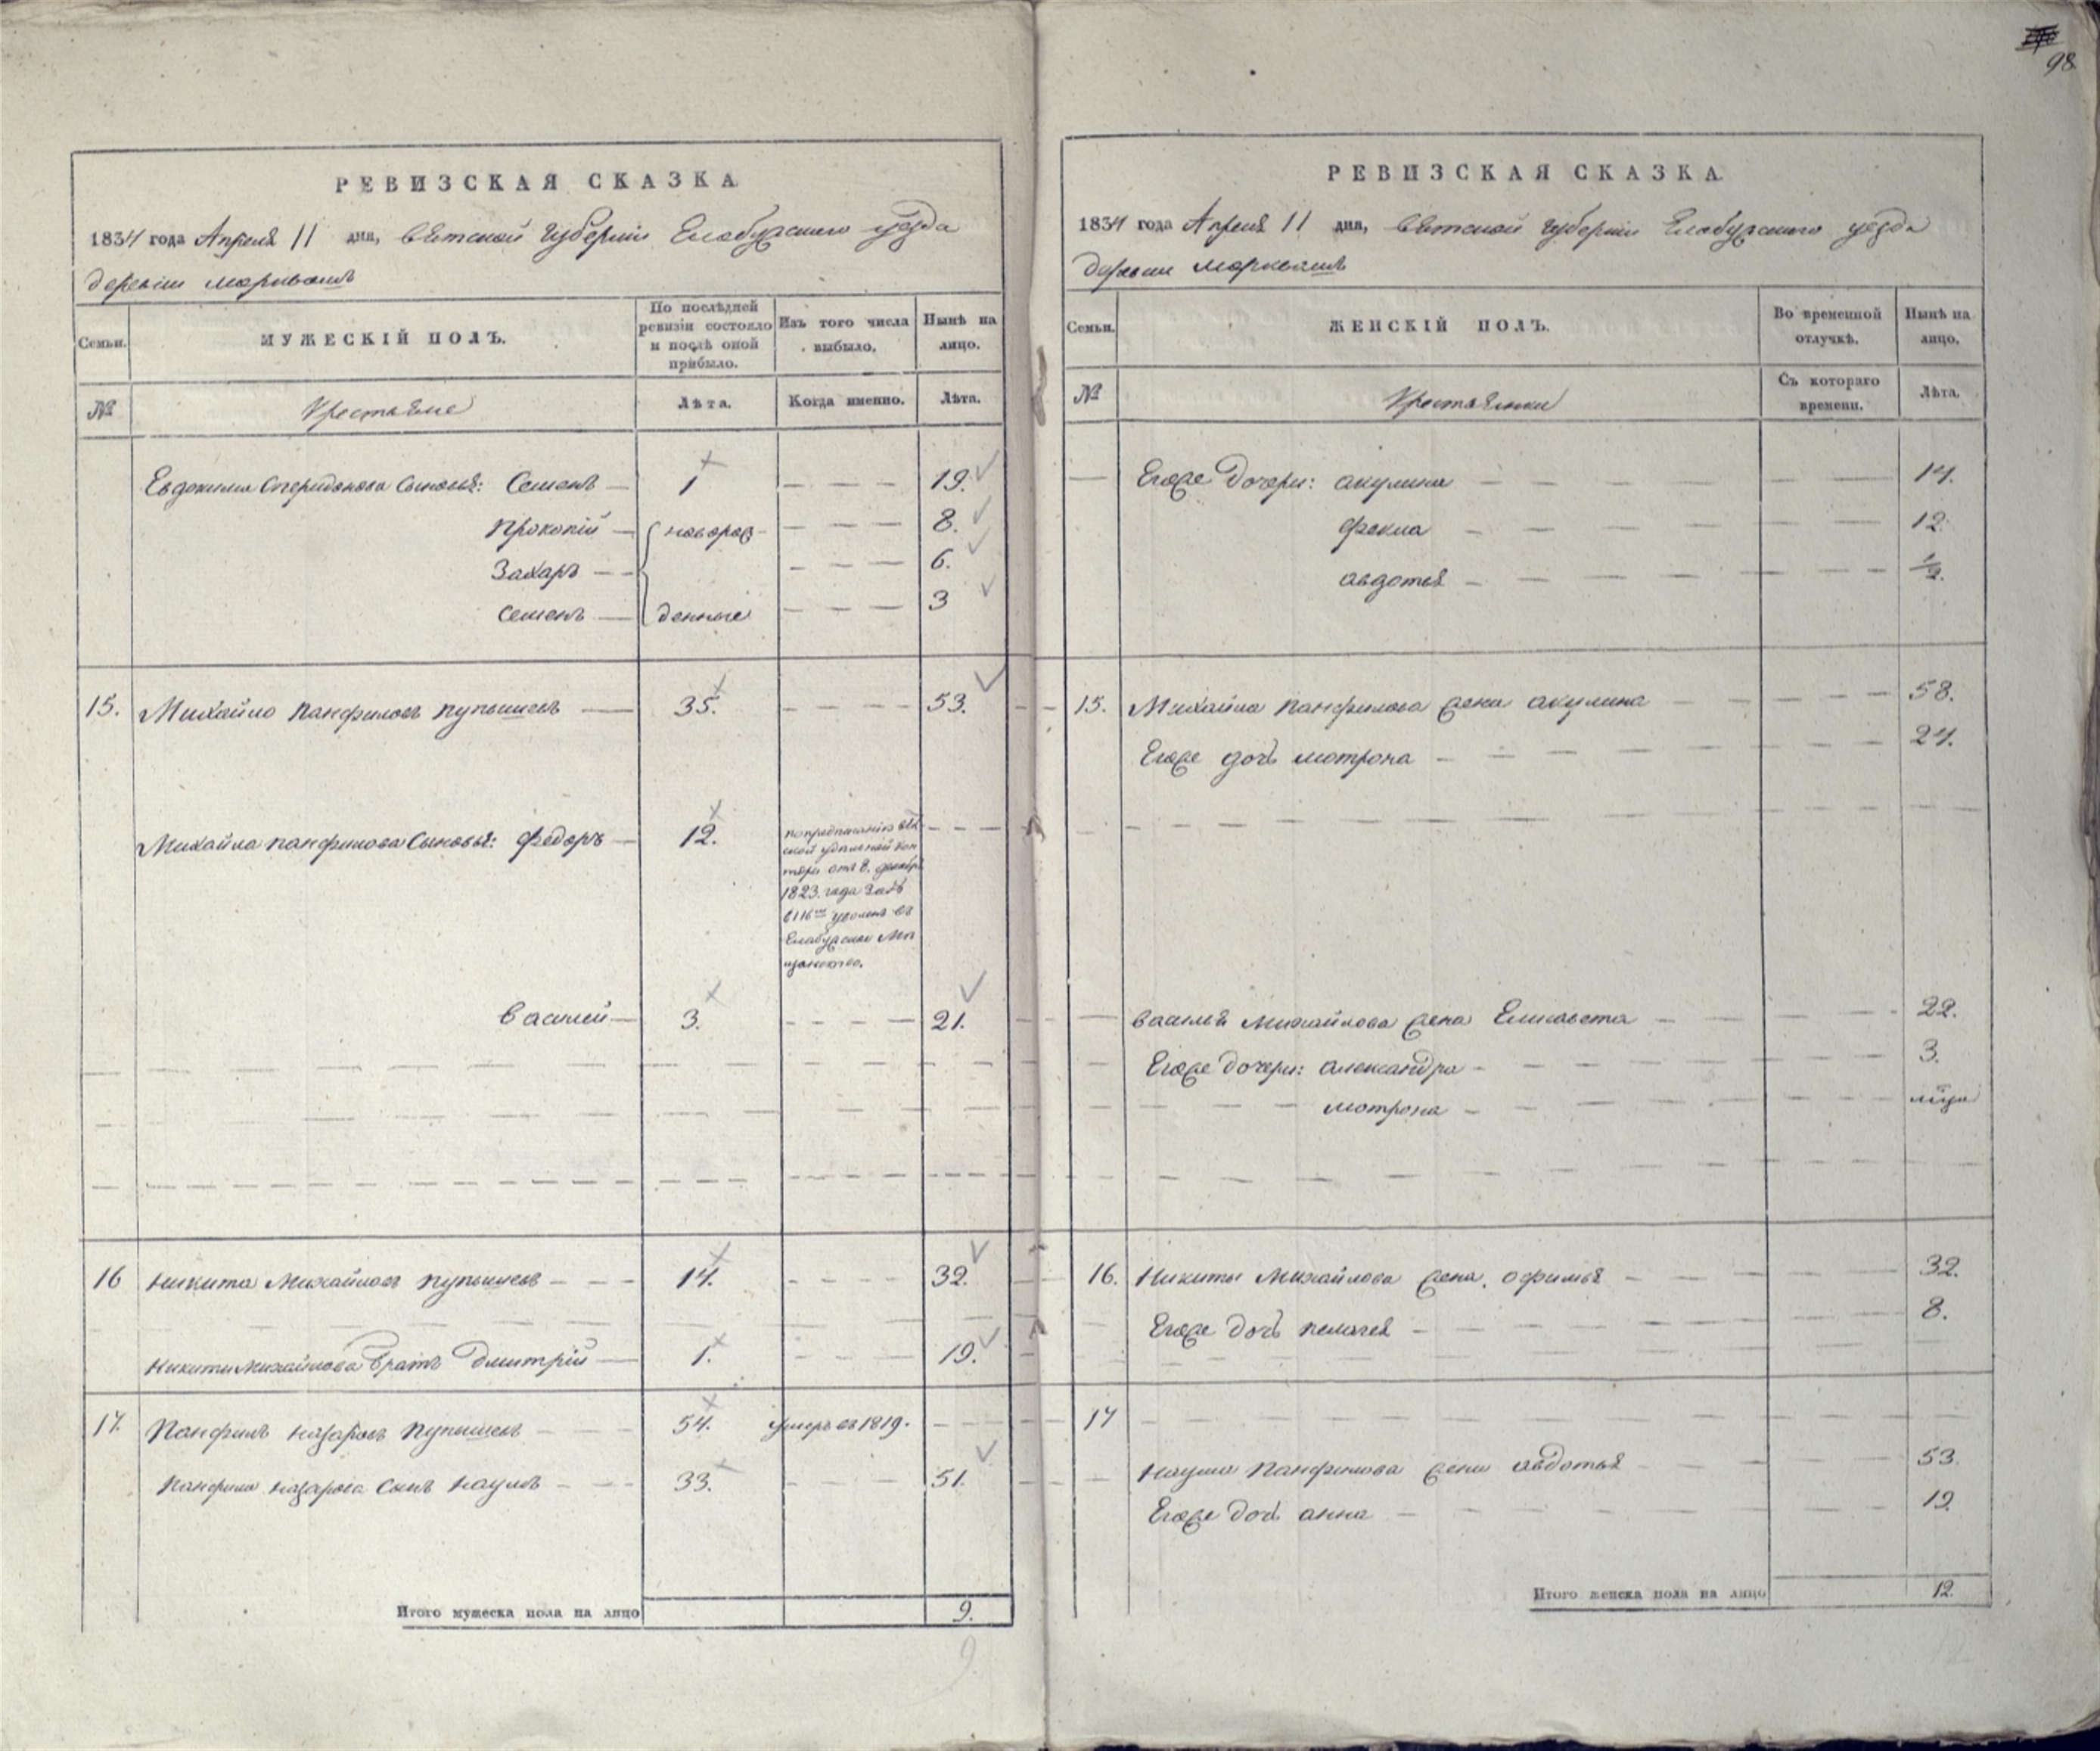 98
РЕВИЗСКАЯ СКАЗКА
1834 года Апреля 11 дня, Вятской губернии Елабужского уезда
деревни Маркваш
Семьи.
МУЖЕСКІЙ ПОЛЪ.
По послѣдней ревизіи состояло и послѣ оной прибыло.
Изъ того числа выбыло.
Нынѣ на лицо.
№
Крестьяне
Лѣта.
Когда именно.
Лѣта.
Евдокима Спиридонова Сыновья: Семенъ — 1 — — — 19.
Прокопій — новорож- — — — 8.
Захаръ — — — — — 6.
Семенъ — денные — — — 3
15. Михайло Панфиловъ Пупышевъ — 35. — — — — 53.
Михайла Панфилова Сыновья: Федоръ — 12. — — —
по предписанію Вят
ской удѣльной кон
торы отъ 8. декабря
1823. года за №
6116м уволенъ въ
Елабужское Мѣ
щанство.
Василей — 3. — — — — 21.
16 Никита Михайловъ Пупышевъ — — — 14. — — — — 32.
Никиты Михайлова братъ Дмитрій — 1. — — — 19.
17. Панфилъ Назаровъ Пупышевъ — — — 54. Умеръ въ 1819. — — —
Панфила Назарова Сынъ Наумъ — — — 33. — — — 51.
Итого мужеска пола на лицо 9.
9
РЕВИЗСКАЯ СКАЗКА.
1834 года Апреля 11 дня, Вятской губернии Елабужского уезда
деревни Маркваш
Семьи.
ЖЕНСКІЙ ПОЛЪ.
Во временной отлучкѣ.
Нынѣ на лицо.
№
Крестьянки
Съ котораго времени.
Лѣта.
Егоже дочери: Акулина — — — 14.
Фекла — — — 12.
Авдотья — — — 1/2.
15. Михайла Панфилова жена Акулина — — — 58.
Егоже дочь Мотрона — — — 24.
Василья Михайлова жена Елисавета — — — 22.
Егоже дочери: Александра — — — 3.
Мотрона — — —
16. Никиты Михайлова жена Офимья — — — 32.
Егоже дочь Пелагея — — — 8.
17 — — —
Наума Панфилова жена Авдотья — — — 53.
Егоже дочь Анна — — — 19.
Итого женска пола на лицо 12.